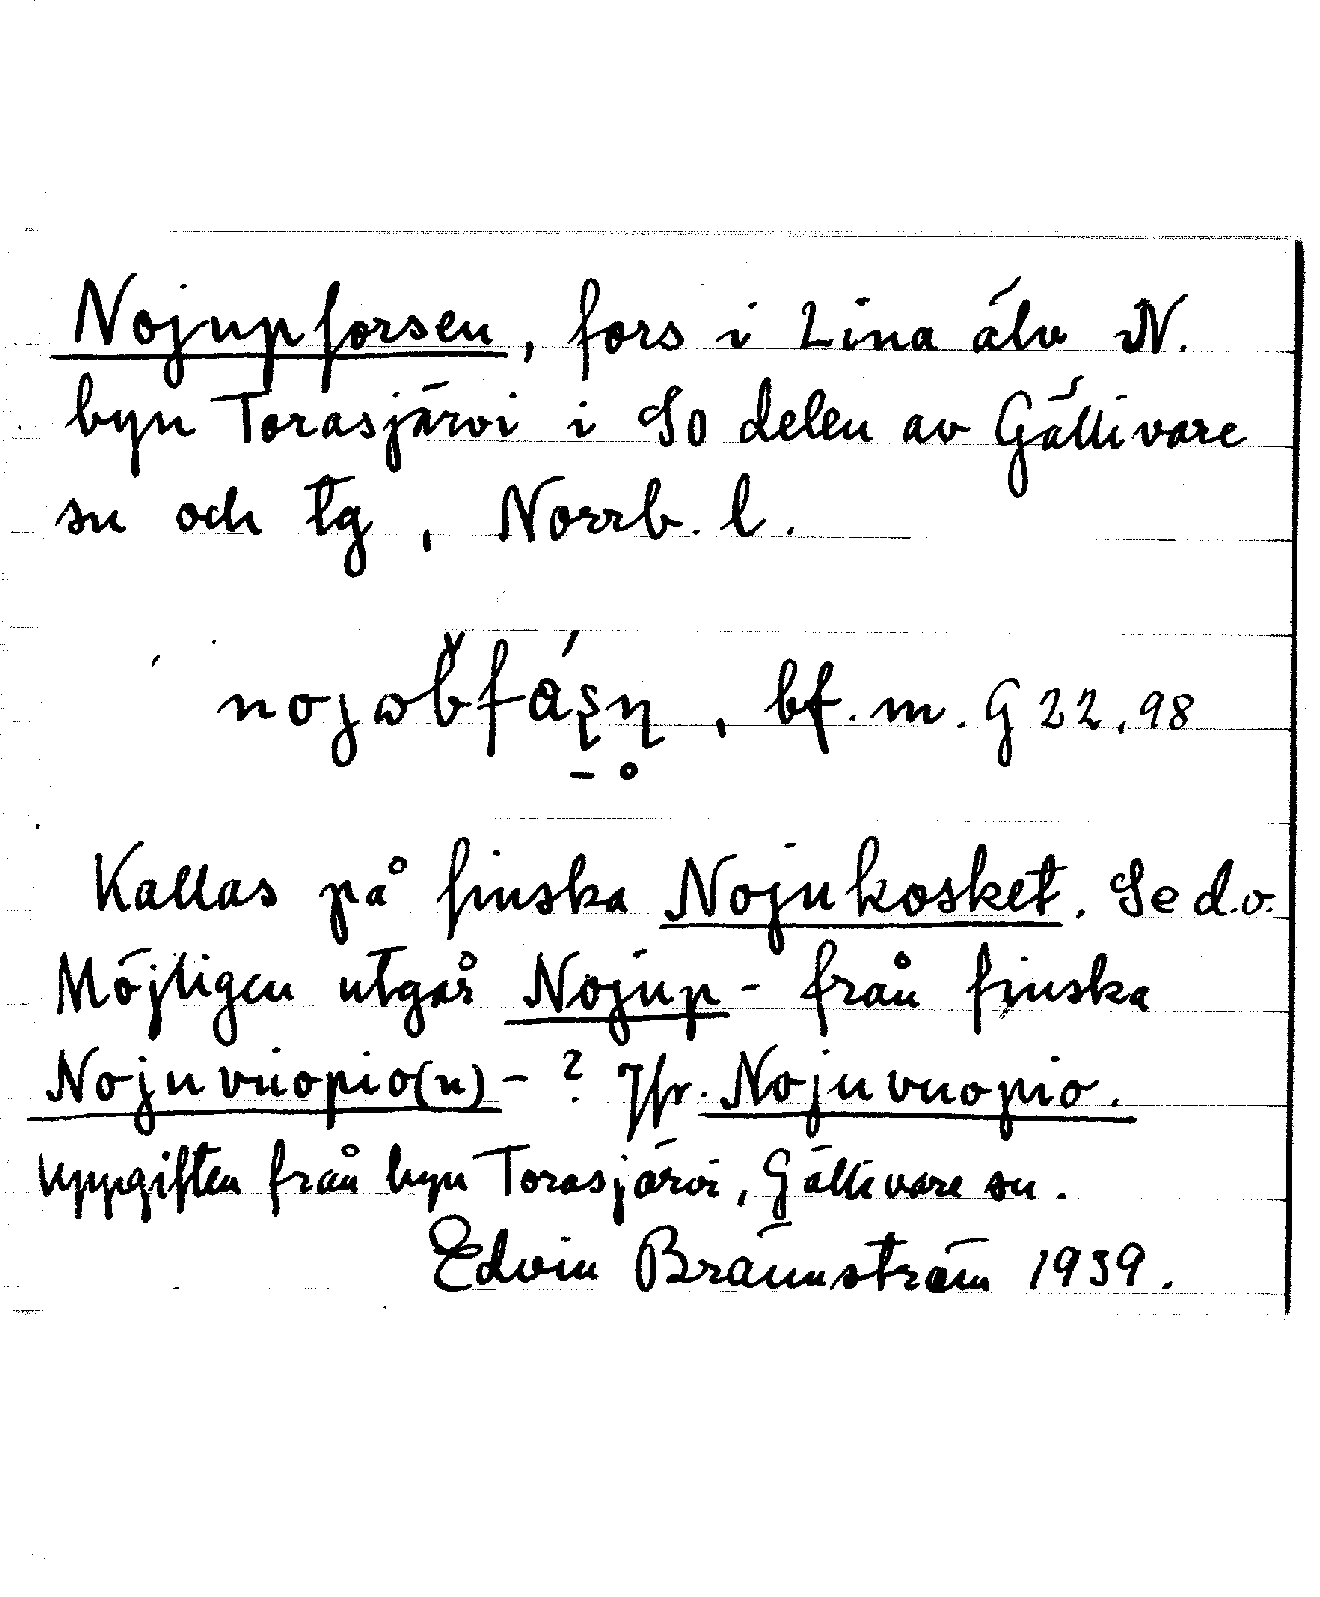 Nojupforsen, fors i Lina älv N.
byn Torasjärvi i SO delen av Gällivare
sn och tg, Norrb. l.
bf. m. G 22, 98
Kallas på finska Nojukosket. Se d.o.
Möjligen utgår Nojup- från finska
Nojuvuopio(n)-? Jfr. Nojuvuopio.
Uppgiften från byn Torasjärvi, Gällivare sn.
Edvin Brännström 1939.